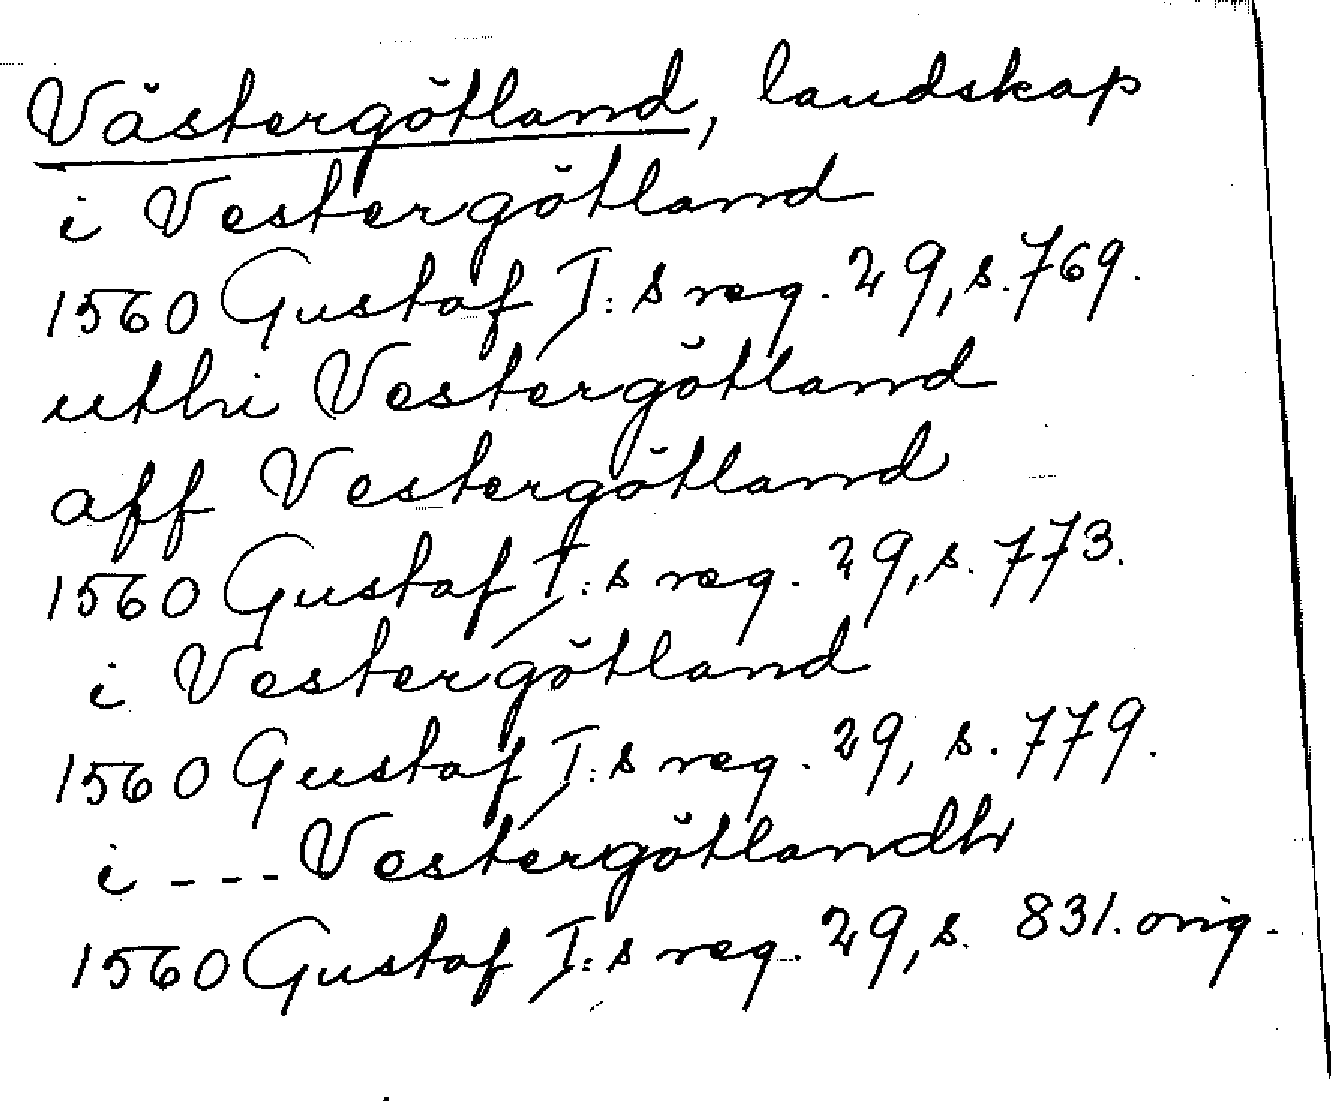 Västergötland, landskap
i Vestergötland
1560 Gustaf I:s reg. 29, s. 769.
uthi Vestergötland
aff Vestergötland
1560 Gustaf I:s reg. 29, s. 773.
i Vestergötland
1560 Gustaf I:s reg. 29, s. 779.
i --- Vestergötlandh
1560 Gustaf I:s reg. 29, s. 831. orig.